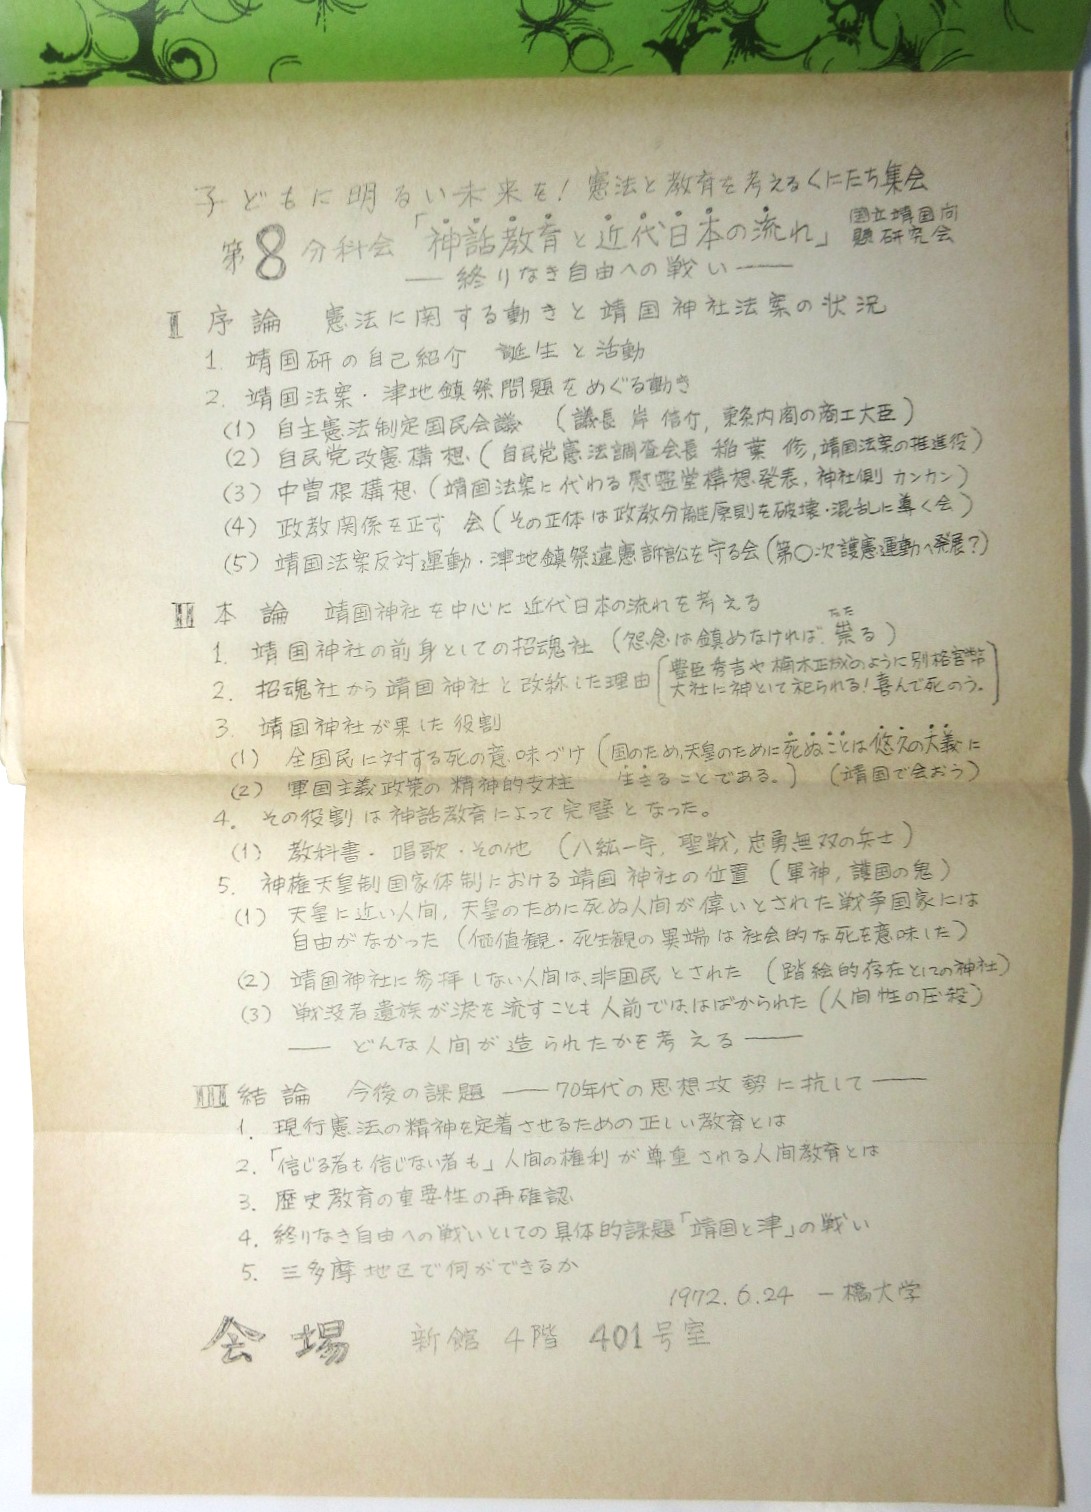 子どもに明るい未来を！憲法と教育を考えるくにたち集会
第8分科会「神話教育と近代日本の流れ」国立靖国問題研究会
― 終りなき自由への戦い ―
Ⅰ 序論 憲法に関する動きと靖国神社法案の状況
1. 靖国研の自己紹介 誕生と活動
2. 靖国法案・津地鎮祭問題をめぐる動き
(1) 自主憲法制定国民会議 (議長 岸 信介, 東条内閣の商工大臣)
(2) 自民党改憲構想 (自民党憲法調査会長 稲葉 修, 靖国法案の推進役)
(3) 中曽根構想 (靖国法案に代わる慰霊堂構想発表, 神社側カンカン)
(4) 政教関係を正す会 (その正体は政教分離原則を破壊・混乱に導く会)
(5) 靖国法案反対運動・津地鎮祭違憲訴訟を守る会 (第〇次護憲運動へ発展？)
Ⅱ 本論 靖国神社を中心に近代日本の流れを考える
1. 靖国神社の前身としての招魂社 (怨念は鎮めなければ、祟(たた)る)
2. 招魂社から靖国神社と改称した理由 [豊臣秀吉や楠木正成のように別格官幣
大社に神として祀られる！喜んで死のう。]
3. 靖国神社が果した役割
(1) 全国民に対する死の意味づけ (国のため,天皇のために死ぬことは悠久の大義に
生きることである。) (靖国で会おう)
(2) 軍国主義政策の精神的支柱
4. その役割は神話教育によって完璧となった。
(1) 教科書・唱歌・その他 (八紘一宇, 聖戦, 忠勇無双の兵士)
5. 神権天皇制国家体制における靖国神社の位置 (軍神, 護国の鬼)
(1) 天皇に近い人間, 天皇のために死ぬ人間が偉いとされた戦争国家には
自由がなかった (価値観・死生観の異端は社会的な死を意味した)
(2) 靖国神社に参拝しない人間は、非国民とされた (踏絵的存在としての神社)
(3) 戦没者遺族が涙を流すことも人前では、はばかられた (人間性の圧殺)
― どんな人間が造られたかを考える ―
Ⅲ 結論 今後の課題 ― 70年代の思想攻勢に抗して ―
1. 現行憲法の精神を定着させるための正しい教育とは
2. 「信じる者も信じない者も」人間の権利が尊重される人間教育とは
3. 歴史教育の重要性の再確認
4. 終りなき自由への戦いとしての具体的課題「靖国と津」の戦い
5. 三多摩地区で何ができるか
1972.6.24 一橋大学
会場 新館 4階 401号室